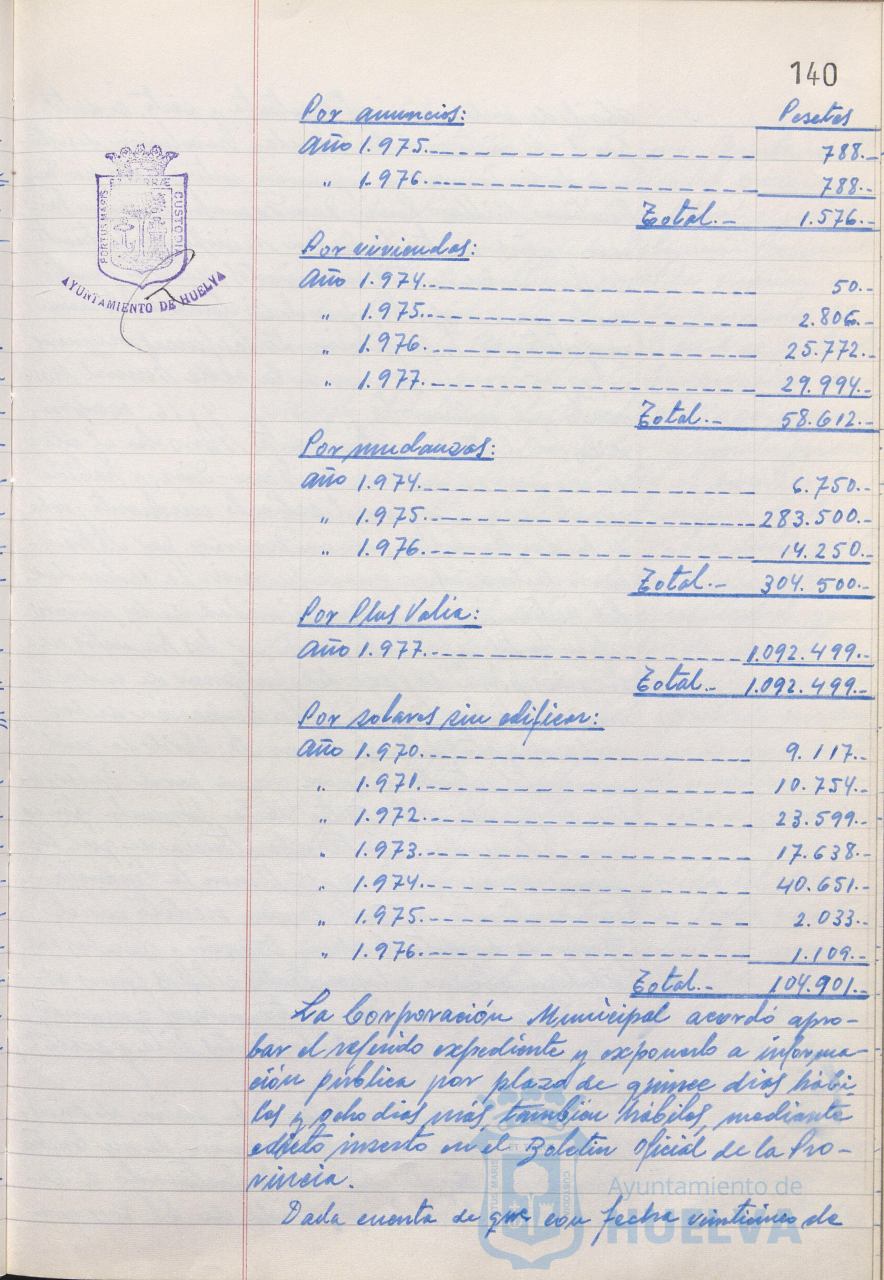 140
Por anuncios: Pesetas
Año 1.975.- 788.-
" 1.976.- 788.-
Total.- 1.576.-
Por viviendas:
Año 1.974.- 50.-
" 1.975.- 2.806.-
" 1.976. 25.772.-
" 1.977.- 29.994.-
Total.- 58.612.-
Por mudanzas:
Año 1.974.- 6.750.-
" 1.975.- 283.500.-
" 1.976.- 14.250.-
Total.- 304.500.-
Por Plus Valía:
Año 1.977.- 1.092.499.-
Total.- 1.092.499.-
Por solares sin edificar:
Año 1.970.- 9.117.-
" 1.971.- 10.754.-
" 1.972.- 23.599.-
" 1.973.- 17.638.-
" 1.974.- 40.651.-
" 1.975.- 2.033.-
" 1.976.- 1.109.-
Total.- 104.901.-
La Corporación Municipal acordó apro-
bar el referido expediente y exponerlo a informa-
ción pública por plazo de quince dias hábi-
les y ocho dias más, tambien hábiles, mediante
edicto inserto en el Boletin Oficial de la Pro-
vincia.
Dada cuenta de que con fecha veinticinco de
PORTUS MARIS CUSTODIA
AYUNTAMIENTO DE HUELVA
Ayuntamiento de
HUELVA